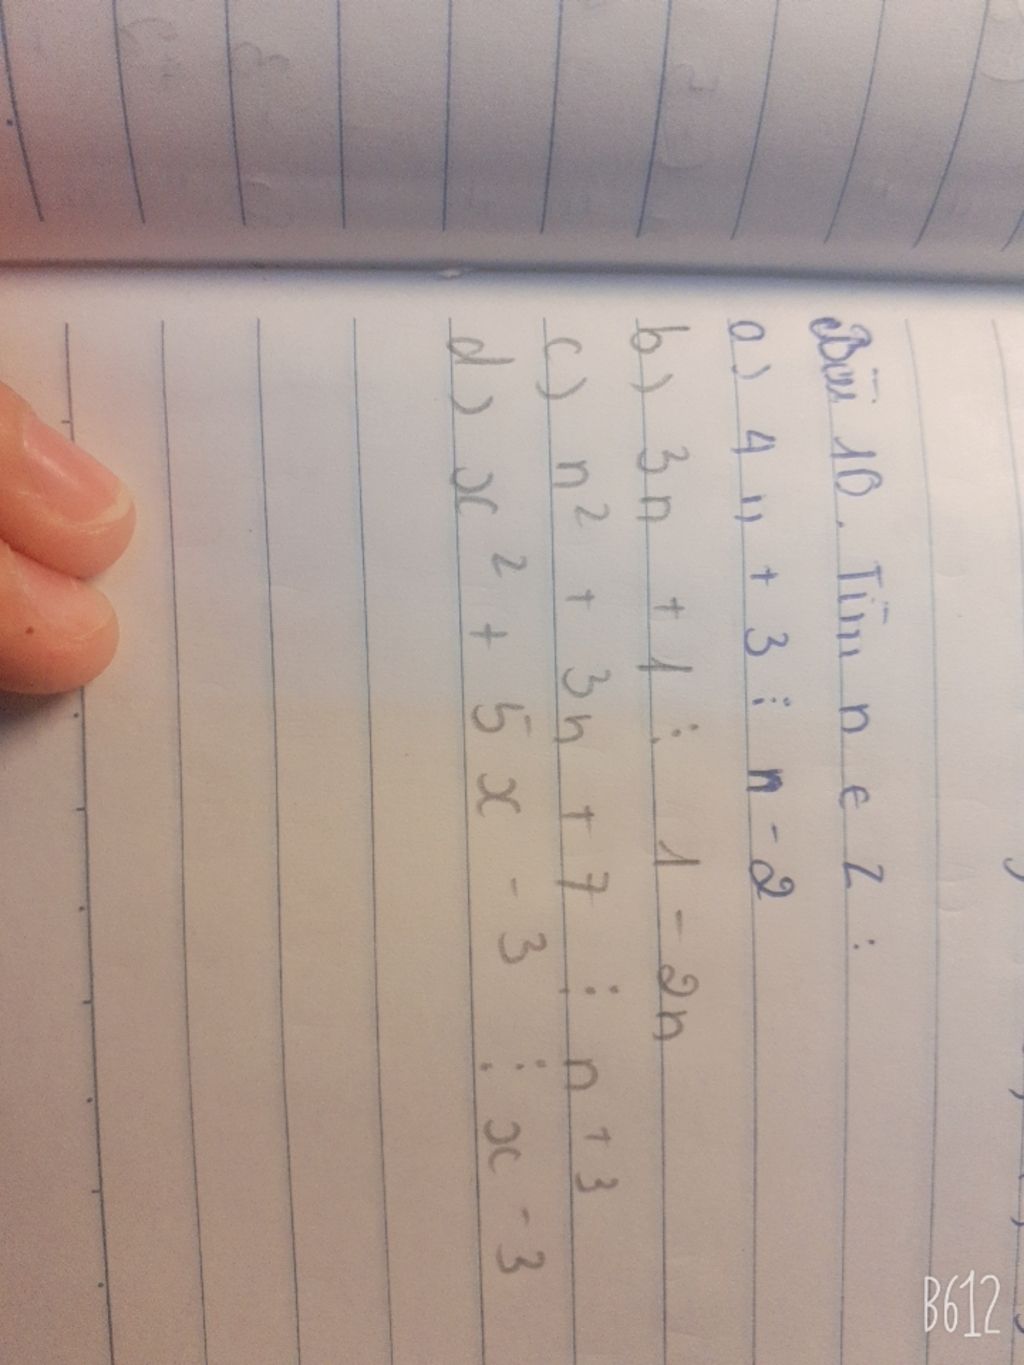 Bài 10. Tìm n ϵ Z :
a) 4n + 3 ⋮ n - 2
b) 3n + 1 ⋮ 1 - 2n
c) n² + 3n + 7 ⋮ n + 3
d) x² + 5x - 3 ⋮ x - 3
B612